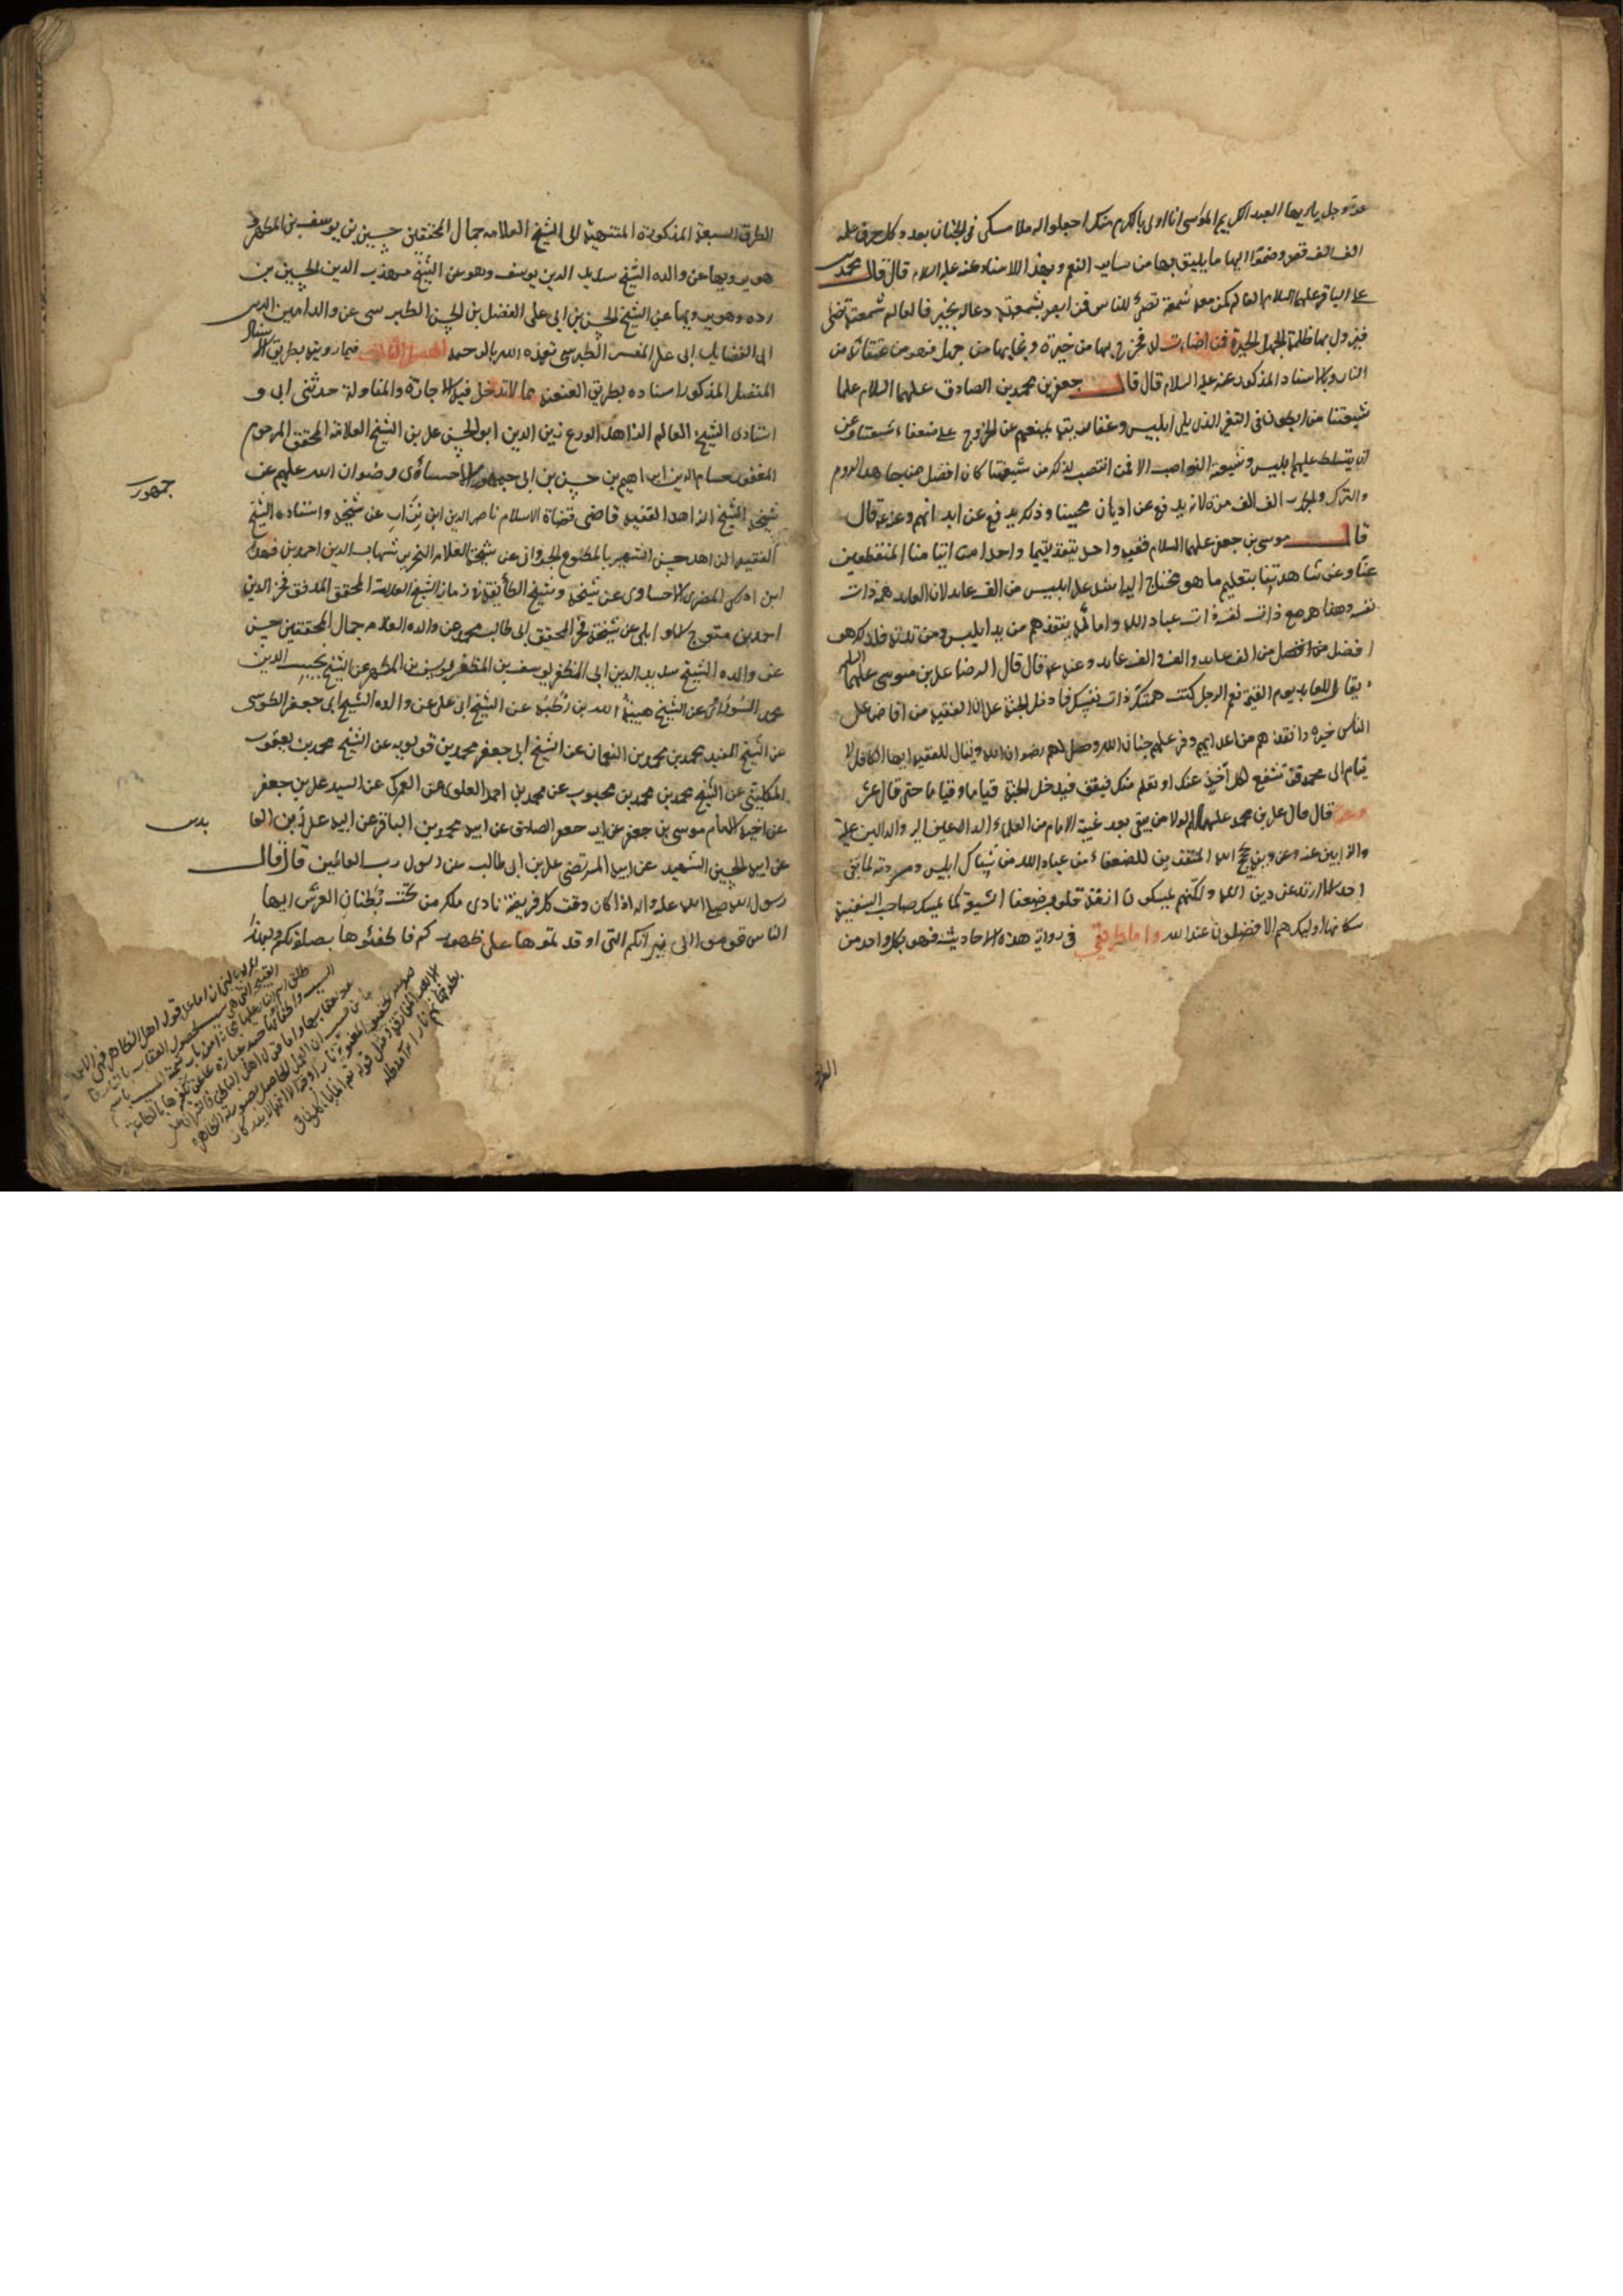 عز وجل يا ايها العبد الكريم المواسي انا اولى بالكرم منك اجعلوا له ملائكتي في الجنان بعدد كل حرف علمه
الف الف قصر وضموا اليها ما يليق بها من ساير النعم وبهذا الاسناد عنه عليه السلام قال قال محمد بن
علي الباقر عليهما السلام العالم كمن معه شمعة تضئ للناس فمن ابصر بشمعته دعا له بخير فالعالم شمعة تضئ
فيزول بها ظلمة الجهل والحيرة فمن اضاءت له فخرج بها من حيرة ونجا بها من جهل فهو من عتقائه من
النار وبالاسناد المذكور عنه عليه السلام قال قال جعفر بن محمد بن الصادق عليهما السلام علماء
شيعتنا مرابطون في الثغر الذي يلي ابليس وعفاريته يمنعهم عن الخروج على ضعفاء شيعتنا وعن
ان يتسلط عليهم ابليس وشيعته النواصب الا فمن انتصب لذلك من شيعتنا كان افضل ممن جاهد الروم
والترك والخزر الف الف مرة لانه يدفع عن اديان محبينا وذلك يدفع عن ابدانهم وعنه قال
قال موسى بن جعفر عليهما السلام فقيه واحد ينقذ يتيما واحدا من ايتامنا المنقطعين
عنا وعن مشاهدتنا بتعليم ما هو محتاج اليه اشد على ابليس من الف عابد لان العابد همه ذات
نفسه وهذا همه مع ذات نفسه ذات عباد الله وامائه ينقذهم من يد ابليس ومردته فلذلك هو
افضل من الف عابد والف الف عابد وعنه قال قال الرضا علي بن موسى عليهما السلام
يقال للعابد يوم القيمة نعم الرجل كنت همتك ذات نفسك فادخل الجنة الا ان الفقيه من افاض على
الناس خيره وانقذهم من اعدائهم ووفر عليهم جنان الله وحصل لهم رضوان الله ويقال للفقيه ايها الكافل لا
يتام ال محمد قف تشفع لكل اخذ عنك او تعلم منك فيقف فيدخل الجنة فياما وفياما حتى قال عشر
وعنه قال قال علي بن محمد عليهما السلام لولا من يبقى بعد غيبة الامام من العلماء الداعين اليه والدالين عليه
والذابين عنه وعن دينه بحجج الله المنقذين للضعفاء من عباد الله من شباك ابليس ومردته لما بقى
احد الا ارتد عن دين الله ولكنهم يمسكون ازمة قلوب ضعفاء الشيعة كما يمسك صاحب السفينة
سكانها اوليك هم الافضلون عند الله واما طريقي في رواية هذه الاحاديث فهو بكل واحد من
الطرق
الطرق السبعة المذكورة المنتهية الى الشيخ العلامه جمال المحققين حسن بن يوسف بن المطهر و
هو يرويها عن والده الشيخ سديد الدين يوسف وهو عن الشيخ مهذب الدين الحسين بن
رده وهو يرويها عن الشيخ الحسن بن ابي علي الفضل بن الحسن الطبرسي عن والده امين الدين
ابي الفضايل ابي علي المفسر الطبرسي تغمده الله بالرحمه فيما رويته بطريق الاسناد
المتصل المذكور اسناده بطريق العنعنة مما لا تدخل فيه الاجازة والمناولة حدثني ابي و
استادى الشيخ العالم الزاهد الورع زين الدين ابو الحسن علي بن الشيخ العلامه المحقق المرحوم
المغفور حسام الدين ابراهيم بن حسن بن ابي جمهور الاحسائي رضوان الله عليهم عن
جمهور
شيخه الشيخ الزاهد الفقيه قاضي قضاة الاسلام ناصر الدين ابن نزار عن شيخه واستاده الشيخ
الفقيه الزاهد حسن الشهير بالمطوع الجرواني عن شيخه العلامه النحرير شهاب الدين احمد بن فهد
ابن ادريس المضري الاحساوى عن شيخه وشيخ الطائفة في زمانه الشيخ العلامة المحقق المدقق فخر الدين
احمد بن متوج الاوالي عن شيخه فخر المحققين ابي طالب محمد عن والده العلامه جمال المحققين حسن
عن والده الشيخ سديد الدين ابي المظفر يوسف بن المطهر عن الشيخ نجيب الدين
محمد السوراوي عن الشيخ هبة الله بن رطبه عن الشيخ ابي علي عن والده الشيخ ابي جعفر الطوسي
عن الشيخ المفيد محمد بن محمد بن النعمان عن الشيخ ابي جعفر محمد بن قولويه عن الشيخ محمد بن يعقوب
الكليني عن الشيخ محمد بن محمد بن محبوب عن محمد بن احمد العلوي عن العمركي عن السيد علي بن جعفر
عن اخيه الامام موسى بن جعفر عن ابيه جعفر الصادق عن ابيه محمد بن الباقر عن ابيه علي زين العا
بدين
عن ابيه الحسين الشهيد عن ابيه المرتضى علي بن ابي طالب عن رسول رب العالمين قال قال
رسول الله صلى الله عليه واله اذا كان وقت كل فريضة نادى ملك من تحت بطنان العرش ايها
الناس قوموا الى نيرانكم التي اوقدتموها على ظهوركم فاطفئوها بصلوتكم وبهذا